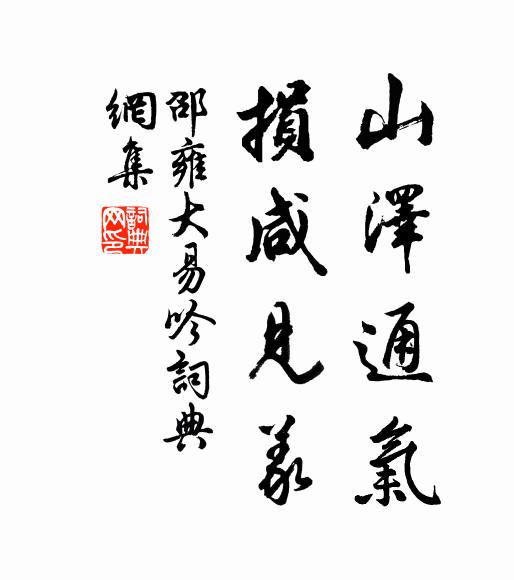 山澤通氣
損咸見義
邵雍大易吟詞典
網集
詞典
网印